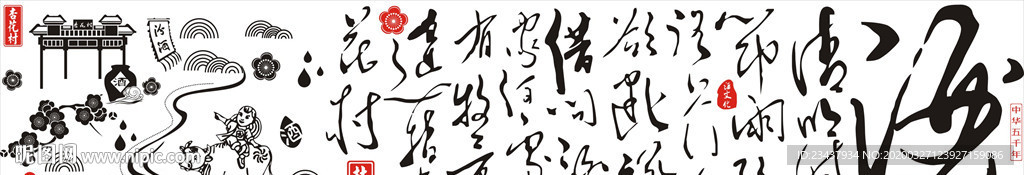 酒
中华五千年
清明
节雨
酒文化
路上行
欲断
借问酒
家何
有牧
遥指
花村
杏花村
汾酒
酒
酒
昵图网 www.nipic.com
ID:23437934 NO:20200327123927159086